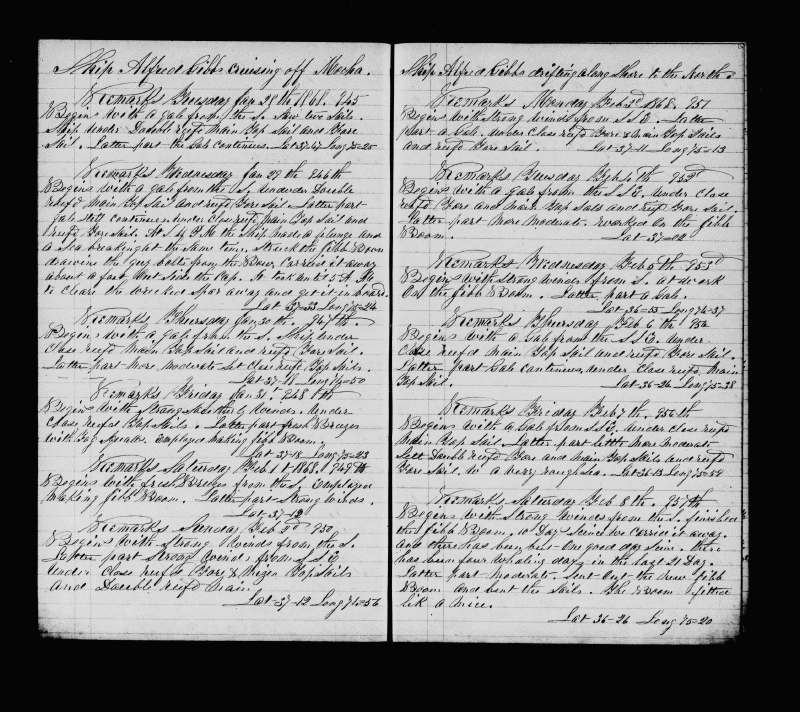 Ship Alfred Gibbs cruising off Mocha.
Remarks Tuesday Jan 28th 1868. 245
Begins with a gale from the S. Saw two Sails.
Ship under Double reefd Main Top Sail and Fore
Sail. Latter part the Gale Continues. Lat 37-47 Long 75-25
Remarks Wednesday Jan 29th 246th
Begins with a gale from the S. under Double
reefd Main Top Sail and reefd Fore Sail. Latter part
gale still continues. Under Close reefd Main Top Sail and
reefd Fore Sail. At 4 P.M. the Ship made a plunge and
a Sea breaking at the Same time. Struck the Jibb Boom
drawing the guy bolts from the Bow. Carried it away
about a foot out Side the Cap. It took un til 5 A.M.
to Cleare the wrecked Spar away and get it in board.
Lat 37-33 Long 75-24
Remarks Thursday Jan 30th. 247th.
Begins with a gale from the S. Ship under
Close reefd Main Top Sail and reefd Fore Sail.
Latter part More moderate Set Close reefd Top Sails.
Long 74-50
Remarks Friday Jan 31. 248th
Begins with Strong Southerly Winds. Under
Close reefed Top Sails. Latter part fresh Breezes
with Fog Squals. Employed making Jibb Boom.
Lat 37-18 Long 75-23
Remarks Saturday Feb 1st 1868. 249th
Begins with fresh Breezes from the S. Employed
making Jibb Boom. Latter part Strong winds.
Lat 37-12
Remarks Sunday Feb 2d 250
Begins with Strong Winds from the S.
Latter part Strong Winds from S S E
under Close reefd Fore & Mizen Top Sails
and Double reefd Main.
Lat 37-12 Long 74-56
Ship Alfred Gibbs drifting along Shore to the North
Remarks Monday Feb 3d 1868. 251
Begins with Strong winds from S S E. Latter
part a Gale. under Close reefd Fore & Main Top Sails
and reefd Fore Sail. Lat 37-11 Long 75-13
Remarks Tuesday Feb 4th 252d
Begins with a gale from the S S E. Under Close
reefd Fore and Main Top Sails and reefd Fore Sail.
Latter part More Moderate. worked on the Jibb
Boom. Lat 37-02
Remarks Wednesday Feb 5th 253d
Begins with Strong winds from S. at work
on the Jibb Boom. Latter part a Gale.
Lat 36-55 Long 74-37
Remarks Thursday Feb 6th 254
Begins with a Gale from the S S E. Under
Close reefd Main Top Sail and reefd Fore Sail.
Latter part Gale Continues, under Close reefd Main
Top Sail. Lat 36-24 Long 75-38
Remarks Friday Feb 7th. 256th
Begins with a Gale from S S E. under Close reefd
Main Top Sail. Latter part little More moderate
Sett Double reefd Fore and Main Top Sails and reefd
Fore Sail. in a very rough Sea. Lat 36-13 Long 75-52
Remarks Saturday Feb 8th. 257th
Begins with Strong Winds from the S. finished
the Jibb Boom. 10 Days Since we Carried it away.
And there has been but one good day Since. there
has been four whaling days in the last 21 Day.
Latter part moderate. Sent out the new Jibb
Boom and bent the Sails. The Boom fitted
lik a mice.
Lat 36-26 Long 75-20